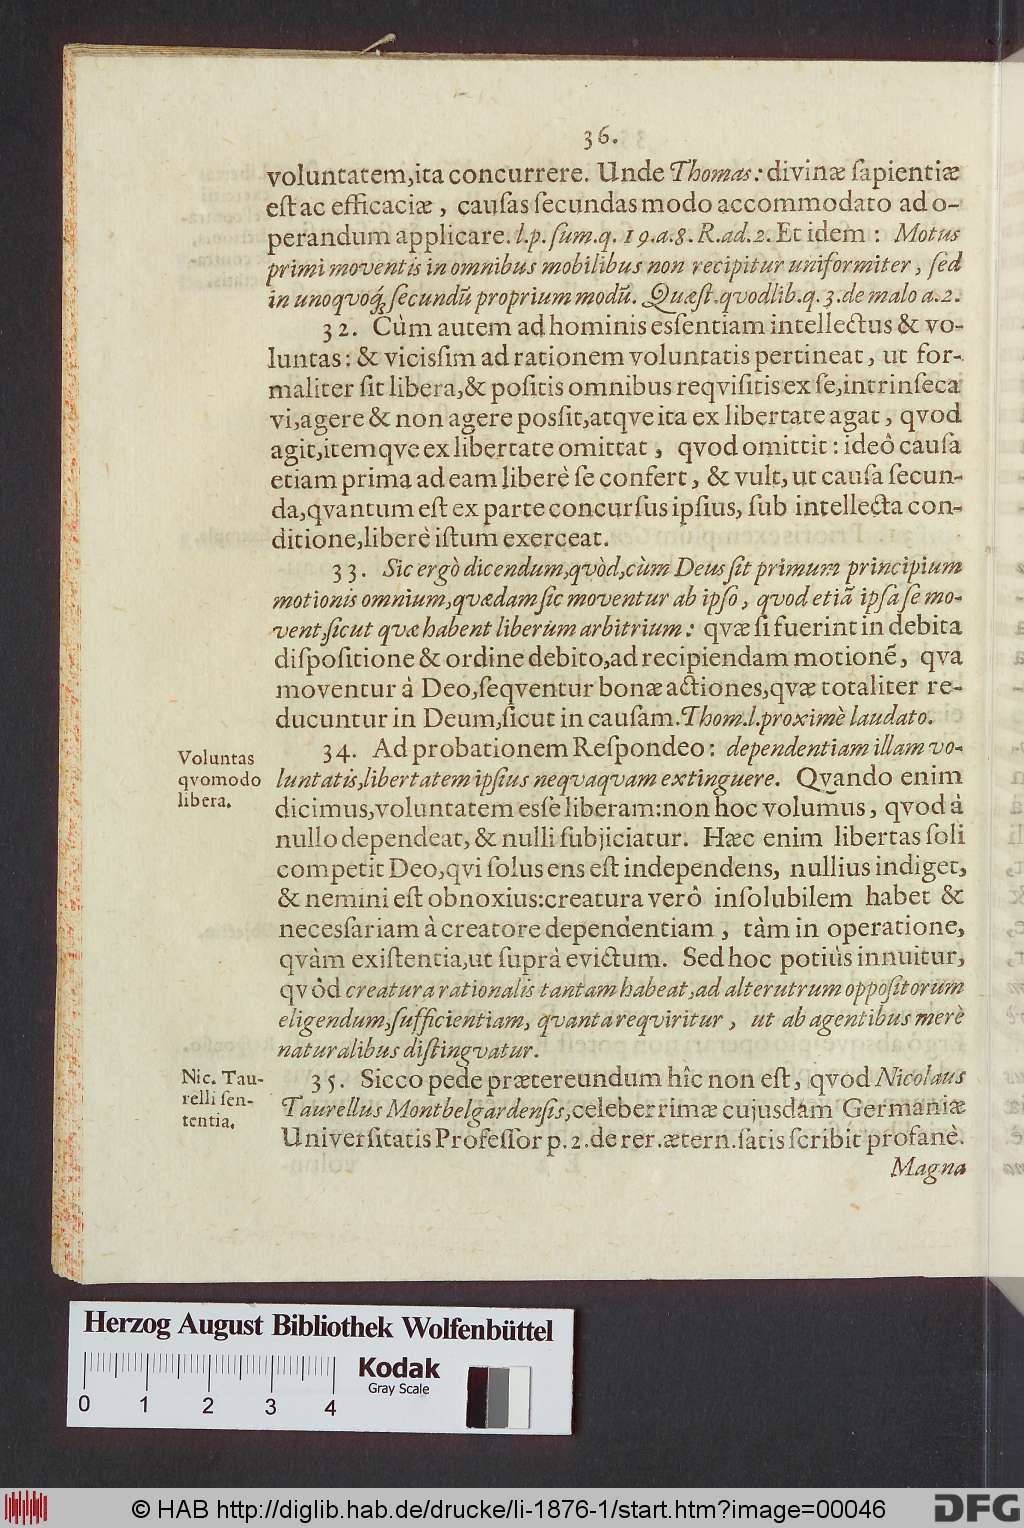 36.
voluntatem,ita concurrere. Unde Thomas: divinæ ſapientiæ
eſt ac efficaciæ, cauſas ſecundas modo accommodato ad o-
perandum applicare. l.p. ſum.q. 19.a.8. R.ad.2. Et idem: Motus
primi moventis in omnibus mobilibus non recipitur uniformiter, ſed
in unoqvoq́; ſecundũ proprium modũ. Quæſt.qvodlib.q.3.de malo a.2.
32. Cùm autem ad hominis esſentiam intellectus & vo-
luntas: & vicisſim ad rationem voluntatis pertineat, ut for-
maliter ſit libera,& poſitis omnibus reqviſitis ex ſe,intrinſeca
vi,agere & non agere posſit,atqve ita ex libertate agat, qvod
agit,itemqve ex libertate omittat, qvod omittit: ideô cauſa
etiam prima ad eam liberè ſe confert, & vult, ut cauſa ſecun-
da,qvantum eſt ex parte concurſus ipſius, ſub intellecta con-
ditione,liberè iſtum exerceat.
33. Sic ergò dicendum,qvòd,cùm Deus ſit primum principium
motionis omnium,qvædam ſic moventur ab ipſo, qvod etiã ipſa ſe mo-
vent,ſicut qvæ habent liberum arbitrium: qvæ ſi fuerint in debita
diſpoſitione & ordine debito,ad recipiendam motionẽ, qva
moventur à Deo,ſeqventur bonæ actiones,qvæ totaliter re-
ducuntur in Deum,ſicut in cauſam. Thom.l.proximè laudato.
Voluntas
qvomodo
libera.
34. Ad probationem Reſpondeo: dependentiam illam vo-
luntatis,libertatem ipſius neqvaqvam extinguere. Qvando enim
dicimus,voluntatem esſe liberam:non hoc volumus, qvod à
nullo dependeat, & nulli ſubjiciatur. Hæc enim libertas ſoli
competit Deo,qvi ſolus ens eſt independens, nullius indiget,
& nemini eſt obnoxius:creatura verô inſolubilem habet &
necesſariam à creatore dependentiam, tàm in operatione,
qvàm exiſtentia,ut ſuprà evictum. Sed hoc potiùs innuitur,
qvôd creatura rationalis tantam habeat,ad alterutrum oppoſitorum
eligendum,ſufficientiam, qvanta reqviritur, ut ab agentibus merè
naturalibus diſtingvatur.
Nic. Tau-
relli ſen-
tentia.
35. Sicco pede prætereundum hîc non eſt, qvod Nicolaus
Taurellus Montbelgardenſis,celeberrimæ cujusdam Germaniæ
Univerſitatis Profeſſor p.2.de rer.ætern.ſatis ſcribit profanè.
Magna
Herzog August Bibliothek Wolfenbüttel
Kodak
Gray Scale
0 1 2 3 4
© HAB http://diglib.hab.de/drucke/li-1876-1/start.htm?image=00046
DFG